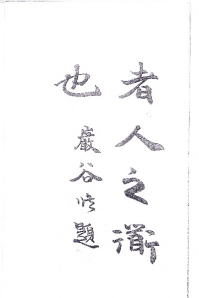 者人之衜
也
巖谷修題